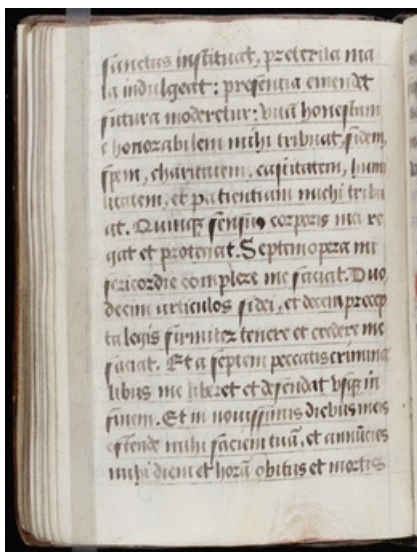 sanctus instituat, preterita ma
la indulgeat: presentia emendet
futura moderetur: vitã honestam
e honorabilem mihi tribuat, fidem,
spem, charitatem, castitatem, humi
litatem, et patientiam michi tribu
at. Quinqȝ sensus corporis mei re
gat et protegat. Septem opera mi
sericordie complere me faciat. Duo
decim articulos fidei, et decem precep
ta legis firmiter tenere et credere me
faciat. Et a septem peccatis crimina
libus me liberet et defendat usqȝ in
finem. Et in novissimis diebus meis
ostende mihi faciem tuã, et annũcies
mihi diem et horã obitus et mortis